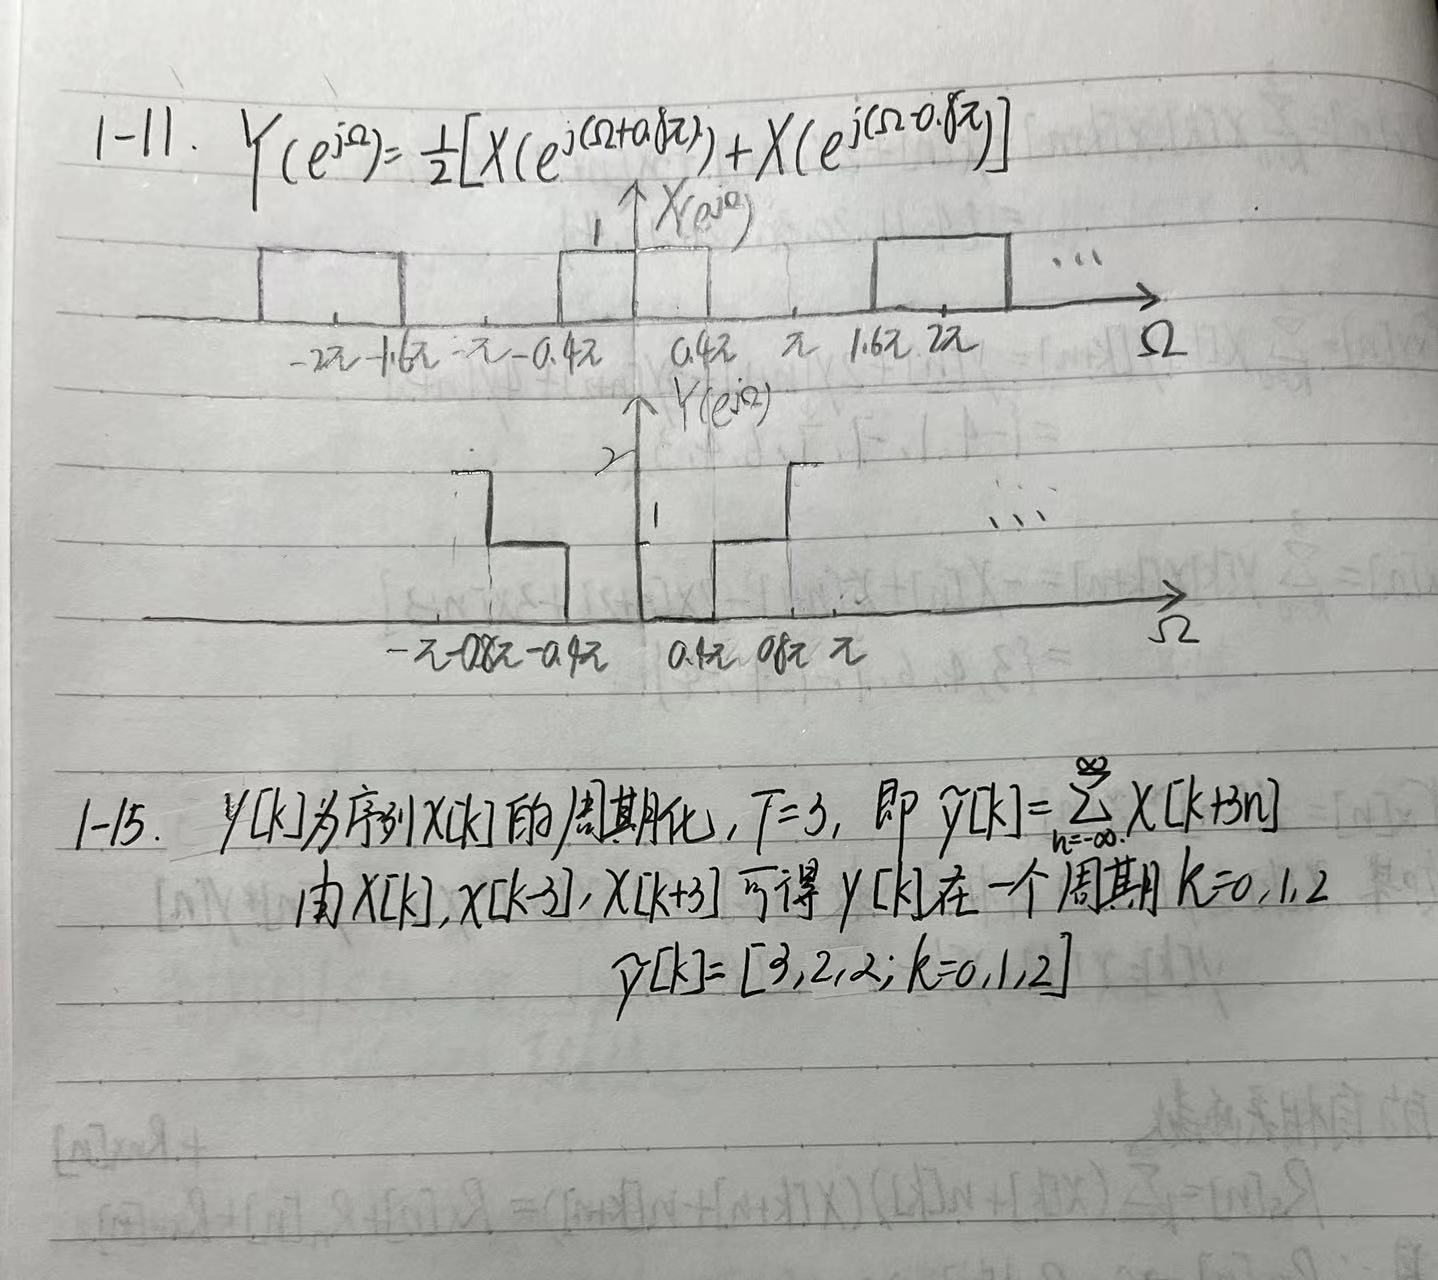 1-11. Y(e^{jΩ})=½[X(e^{j(Ω+0.8π)})+X(e^{j(Ω-0.8π)})]
X(e^{jΩ})
1
...
-2π -1.6π -π -0.4π 0.4π π 1.6π 2π Ω
Y(e^{jΩ})
2
1
...
-π -0.8π -0.4π 0.4π 0.8π π Ω
1-15. Y[k]为序列X[k]的周期化, T=3, 即 ỹ[k]=∑_{n=-∞}^{∞} X[k+3n]
由X[k], X[k-3], X[k+3]可得 y[k]在一个周期 k=0,1,2
ỹ[k]=[3,2,2; k=0,1,2]